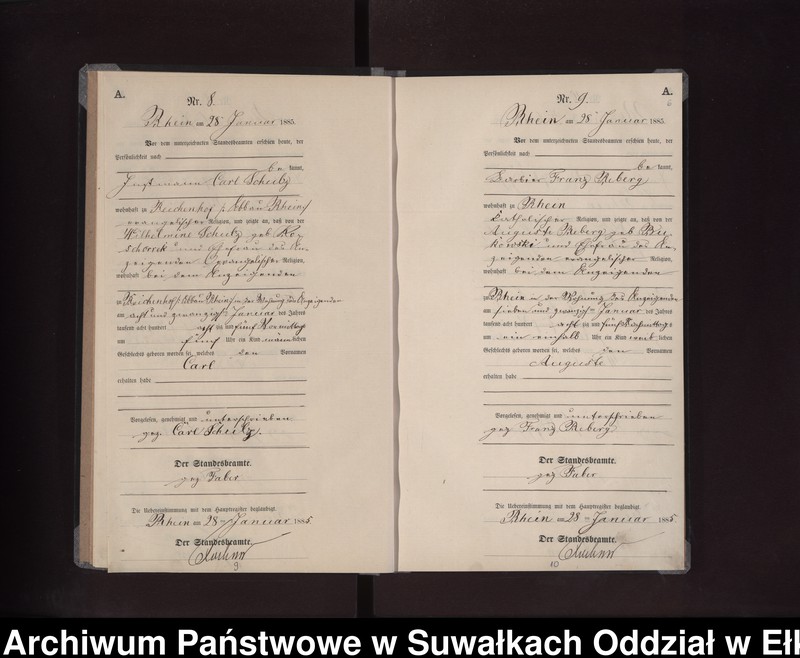 A.
Nr. 8.
Rhein am 28 Januar 1885.
Vor dem unterzeichneten Standesbeamten erschien heute, der
Persönlichkeit nach
be kannt,
Carl Scheitz
wohnhaft zu Reichenhof
evangelischer Religion, und zeigte an, daß von der
Wilhelmine geb.
und Ehefrau des An-
zeigenden evangelischer Religion,
wohnhaft bei dem Anzeigenden
zu Reichenhof in der Wohnung des Anzeigenden
am acht und zwanzigsten Januar des Jahres
tausend acht hundert acht zig und fünf Vormittags
um fünf Uhr ein Kind männ liches
Geschlechts geboren worden sei, welches den Vornamen
Carl
erhalten habe
Vorgelesen, genehmigt und unterschrieben
gez. Carl
Der Standesbeamte.
gez Faber
Die Uebereinstimmung mit dem Hauptregister beglaubigt.
Rhein am 28 ten Januar 1885
Der Standesbeamte.
9
A.
Nr. 9.
Rhein am 28 Januar 1885
Vor dem unterzeichneten Standesbeamten erschien heute, der
Persönlichkeit nach
be kannt,
Barbier Franz Reberg
wohnhaft zu Rhein
katholischer Religion, und zeigte an, daß von der
Auguste Reberg geb
und Ehefrau des An-
zeigenden evangelischer Religion,
wohnhaft bei dem Anzeigenden
zu Rhein in der Wohnung des Anzeigenden
am sieben und zwanzigsten Januar des Jahres
tausend acht hundert acht zig und fünf Nachmittags
um ein einhalb Uhr ein Kind weib liches
Geschlechts geboren worden sei, welches den Vornamen
Auguste
erhalten habe
Vorgelesen, genehmigt und unterschrieben
gez Franz Reberg
Der Standesbeamte.
gez Faber
Die Uebereinstimmung mit dem Hauptregister beglaubigt.
Rhein am 28 ten Januar 1885
Der Standesbeamte.
10
Archiwum Państwowe w Suwałkach Oddział w Ełk